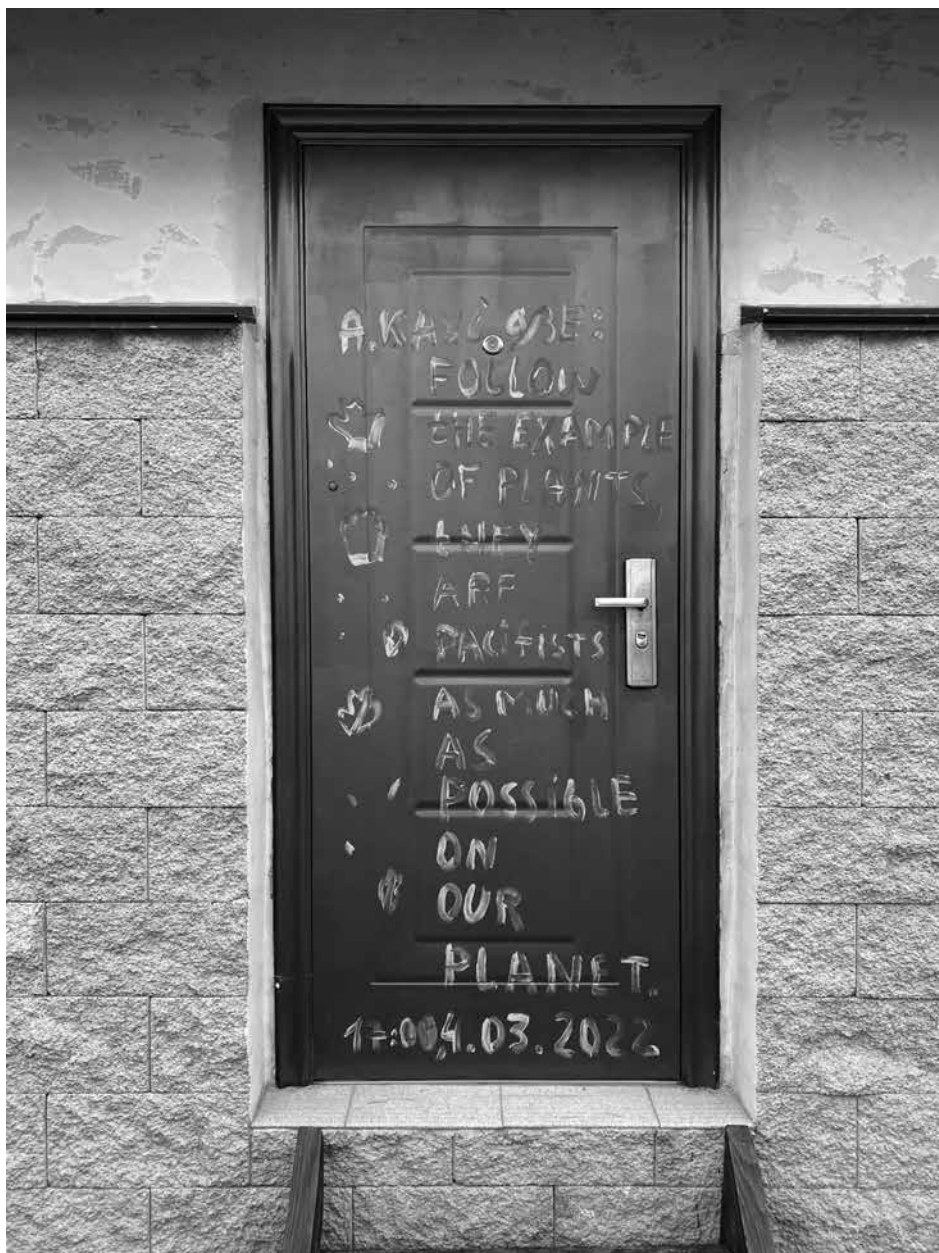 FOLLOW
tHE EXAMPLE
OF PLANTS,
tHEY
ARE
PACIFISTS
AS MUCH
AS
POSSIBLE
ON
OUR
PLANET.
17:00,4.03.2022